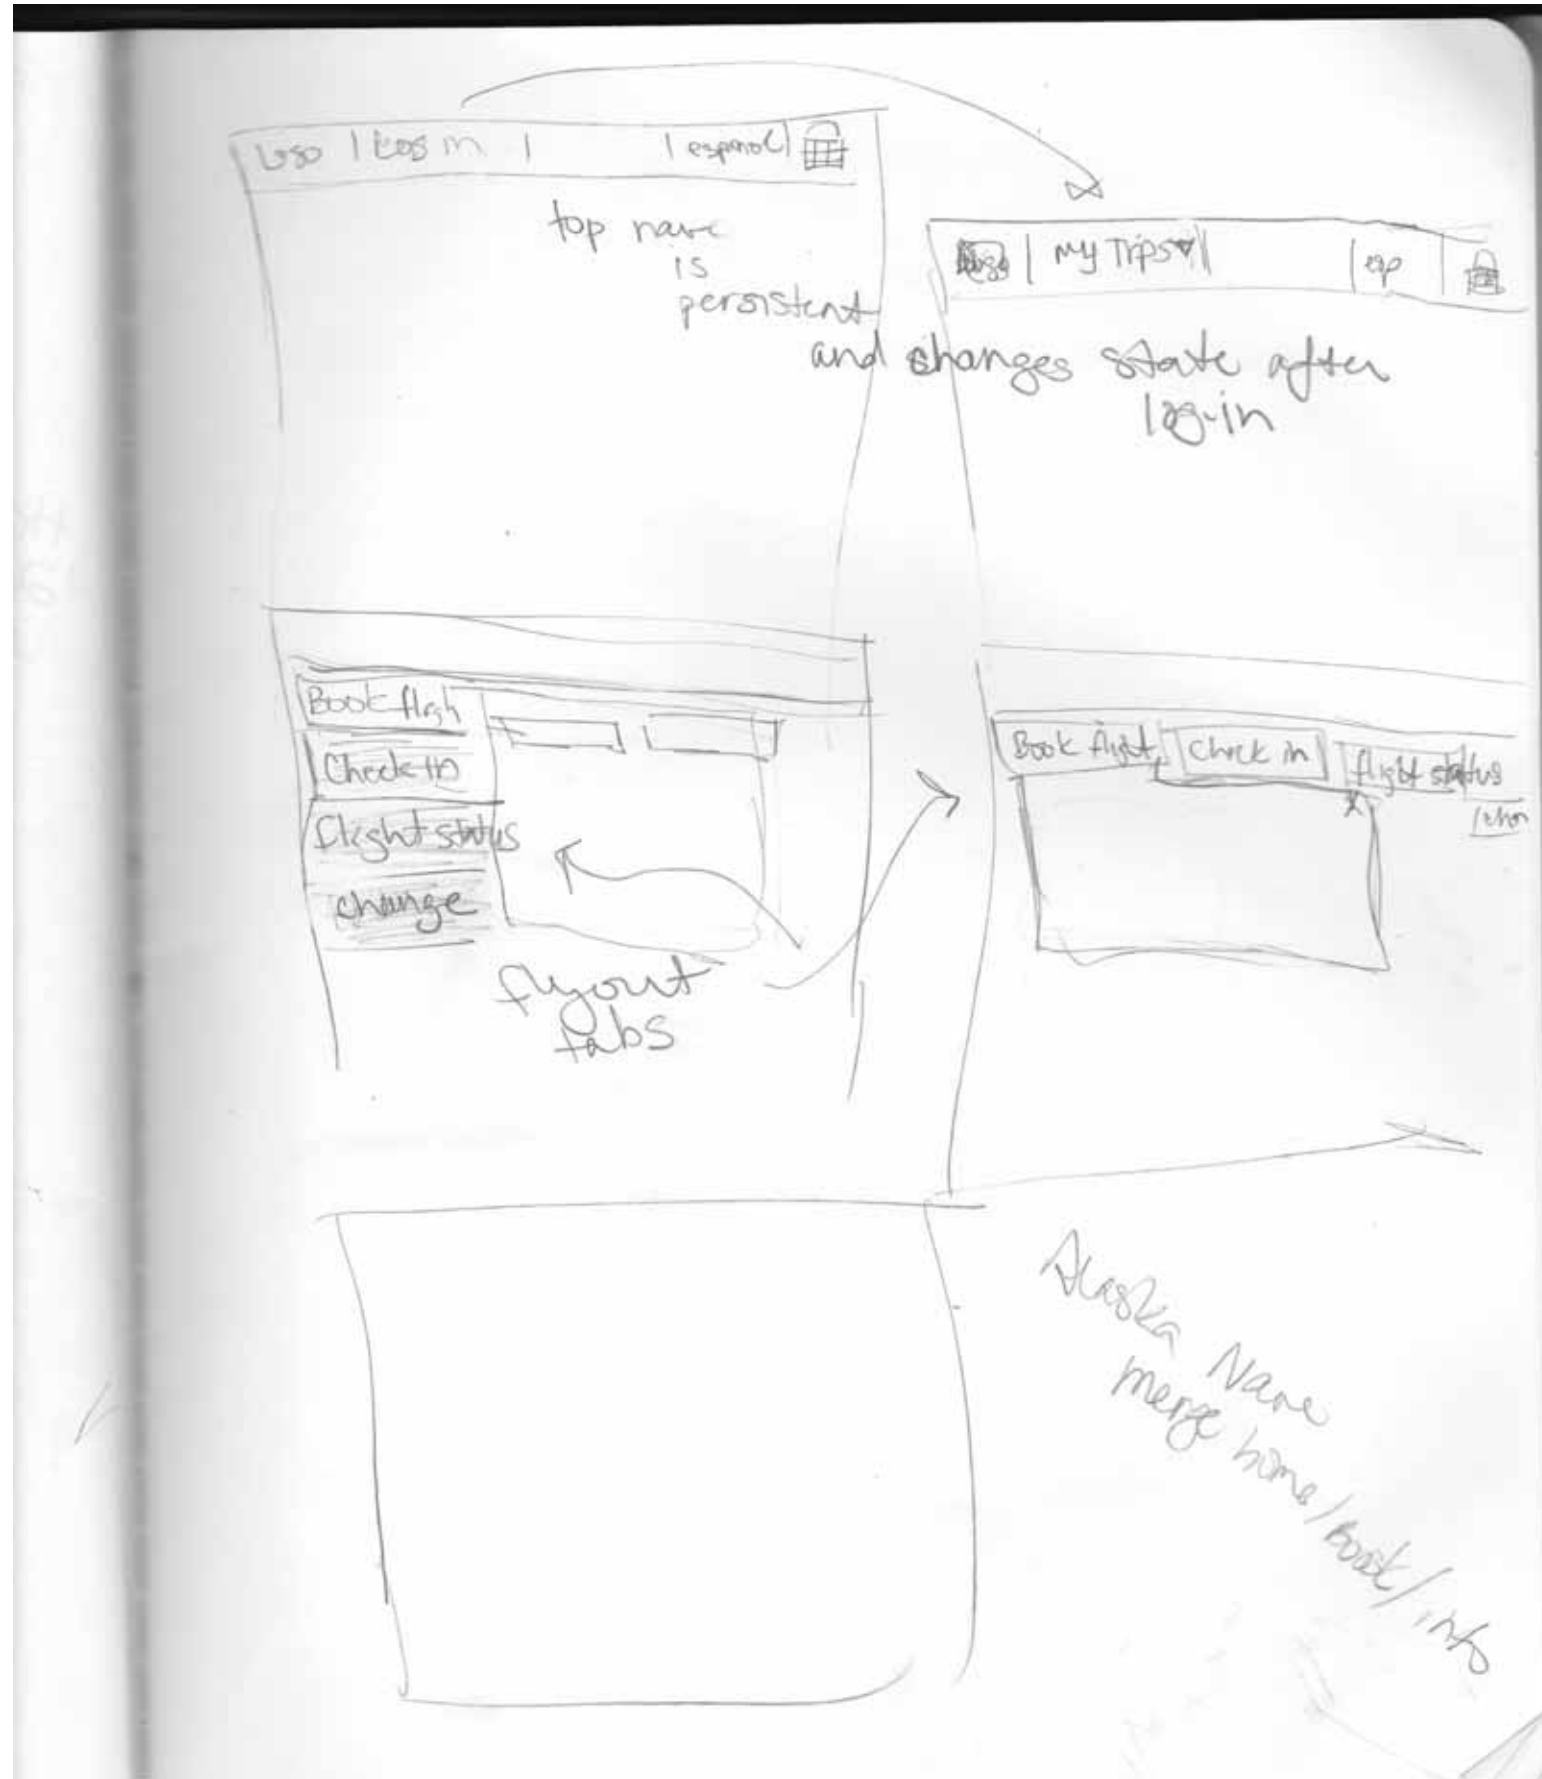 Logo | Log in | | espanol |
top nave
is
persistent
and changes state after
log-in
Logo | My Trips ▾ | | esp |
Book fligh
Check in
flight status
change
flyout
tabs
Book flight
Check in
flight status
x
Alaska Nave
merge home/Book/info